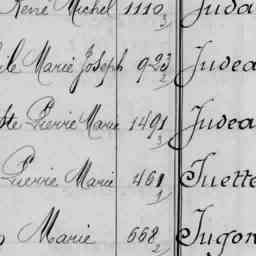 René Michel 1110 3 Juda
ile Marie Joseph 923 2 Judea
ste Pierre Marie 1491 3 Judea
Pierre Marie 461 1 Juette
Marie 668 2 Jugon